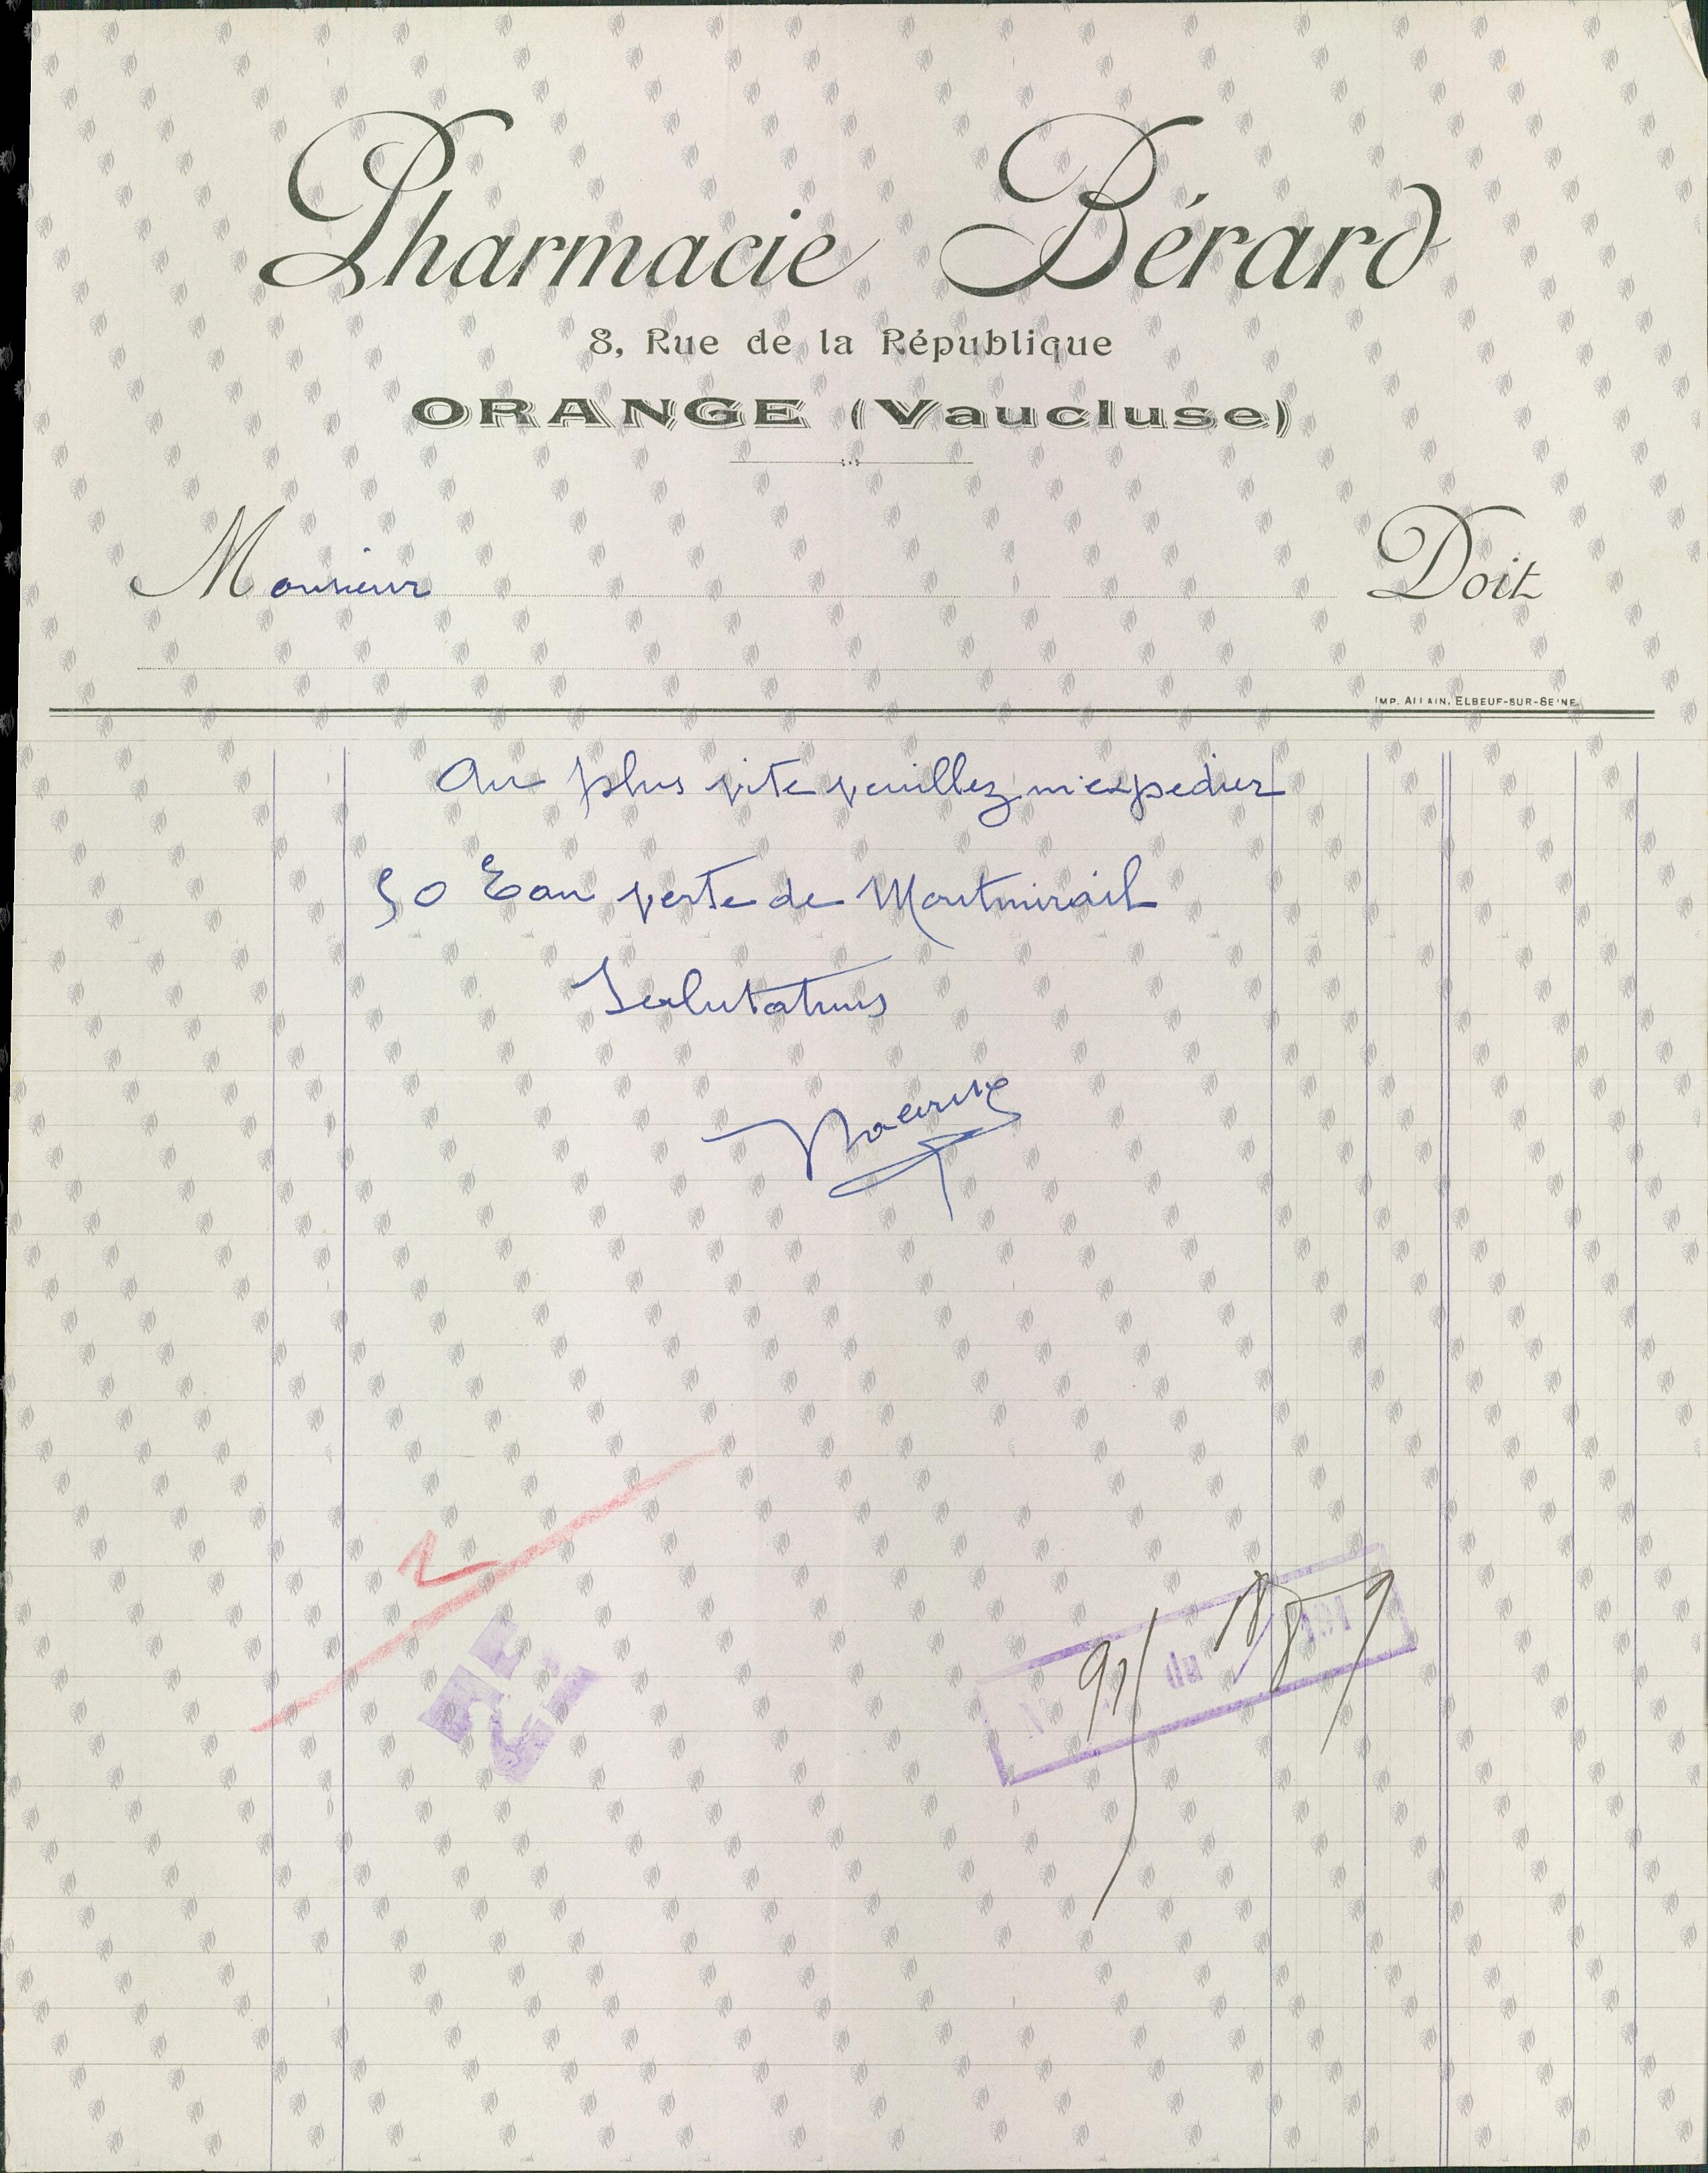 Pharmacie Bérard
8, Rue de la République
ORANGE (Vaucluse)
Monsieur Doit
IMP. ALLAIN, ELBEUF-SUR-SEINE
Au plus vite veuillez m'expedier
50 Eau verte de Montmirail
Salutations
2
N° du 18/8 191 9